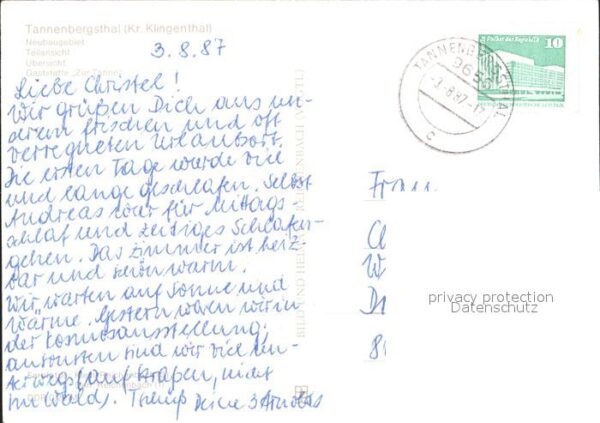 Tannenbergsthal (Kr. Klingenthal)
Neubaugebiet
Teilansicht
Übersicht
Gaststätte „Zur Tanne"
3.8.87
Liebe Christel!
Wir grüßen Dich aus un-
serem frischen und oft
verregneten Urlaubsort.
Die ersten Tage wurde viel
und lange geschlafen. Selbst
Andreas war für Mittags-
schlaf und zeitiges Schlafen-
gehen. Das Zimmer ist heiz
bar und schön warm.
Wir warten auf Sonne und
Wärme. Gestern waren wir in
der Kosmosausstellung.
ansonsten sind wir viel un-
terwegs (auf Straßen, nicht
im Wald). Tschüß Deine 3
BILD UND HEIMAT
TANNENBERGSTHAL
9656
-3.-8.87-17
c
Palast der Republik
10
Frau
Cl
W
D
8
privacy protection
Datenschutz